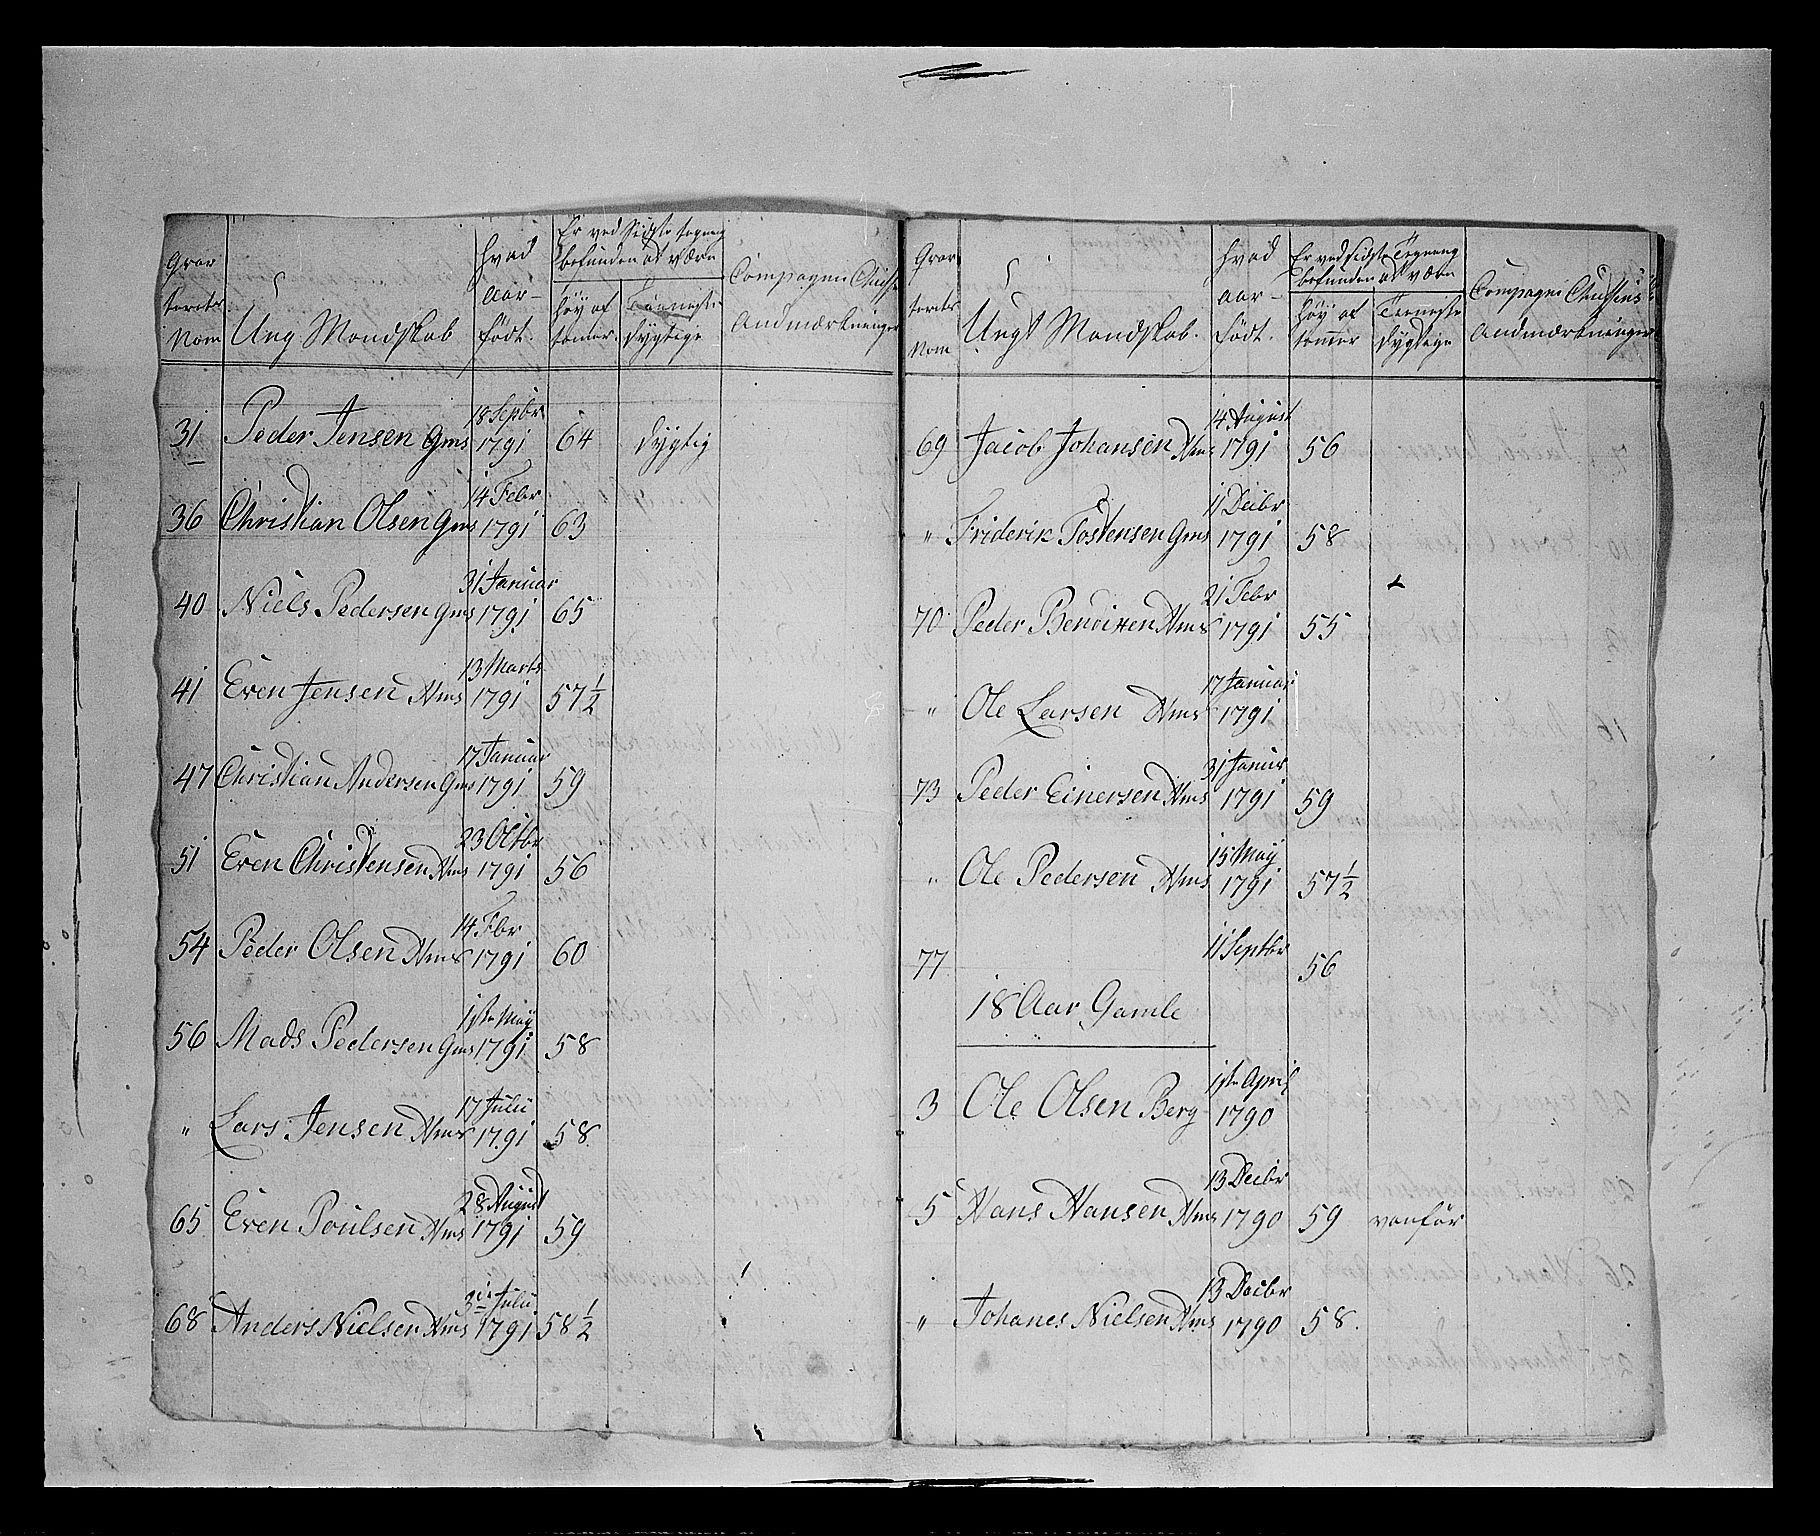 Quar
teerets
Nom
Ung Mandskab
hvad
aar
født.
Er ved Sidste tegning
befunden at være
høy af
tomer.
Tienneste
dygtige
Compagnie Cheffens
Andmærkninger
31 Peder Jensen Gms 18 Sepbr 1791 64 dygtig
36 Christian Olsen Gms 14 Febr 1791 63
40 Niels Pedersen Gms 31 Januar 1791 65
41 Even Jensen Hms 13 Marts 1791 57 1/2
47 Christian Andersen Gms 17 Januar 1791 59
51 Even Christensen Hms 23 Octbr 1791 56
54 Peder Olsen Hms 14 Fbr 1791 60
56 Mads Pedersen Gms 1ste May 1791 58
" Lars Jensen Hms 17 Julii 1791 58
65 Even Poulsen Hms 28 August 1791 59
68 Anders Nielsen Hms Julii 1791 58 1/2
Quar
teerets
Nom
Ungt Mandskab.
hvad
aar
født.
Er ved Sidste Tegning
befunden at være
høy af
tommer
Tienneste
dygtige
Compagnie Cheffens
Andmærkninger
69 Jacob Johansen Hms 14 August 1791 56
" Friderik Tostensen Gms 11 Decbr 1791 58
70 Peder Bendixen Hms 21 Febr 1791 55
" Ole Larsen Hms 17 Januar 1791
73 Peder Einersen Hms 31 Janur 1791 59
" Ole Pedersen Hms 15 May 1791 57 1/2
77 11 Septbr 56
18 Aar Gamle
3 Ole Olsen Berg 1ste April 1790
5 Hans Hansen Hms 13 Decbr 1790 59 vanför
" Johanes Nielsen Hms 13 Decbr 1790 58.